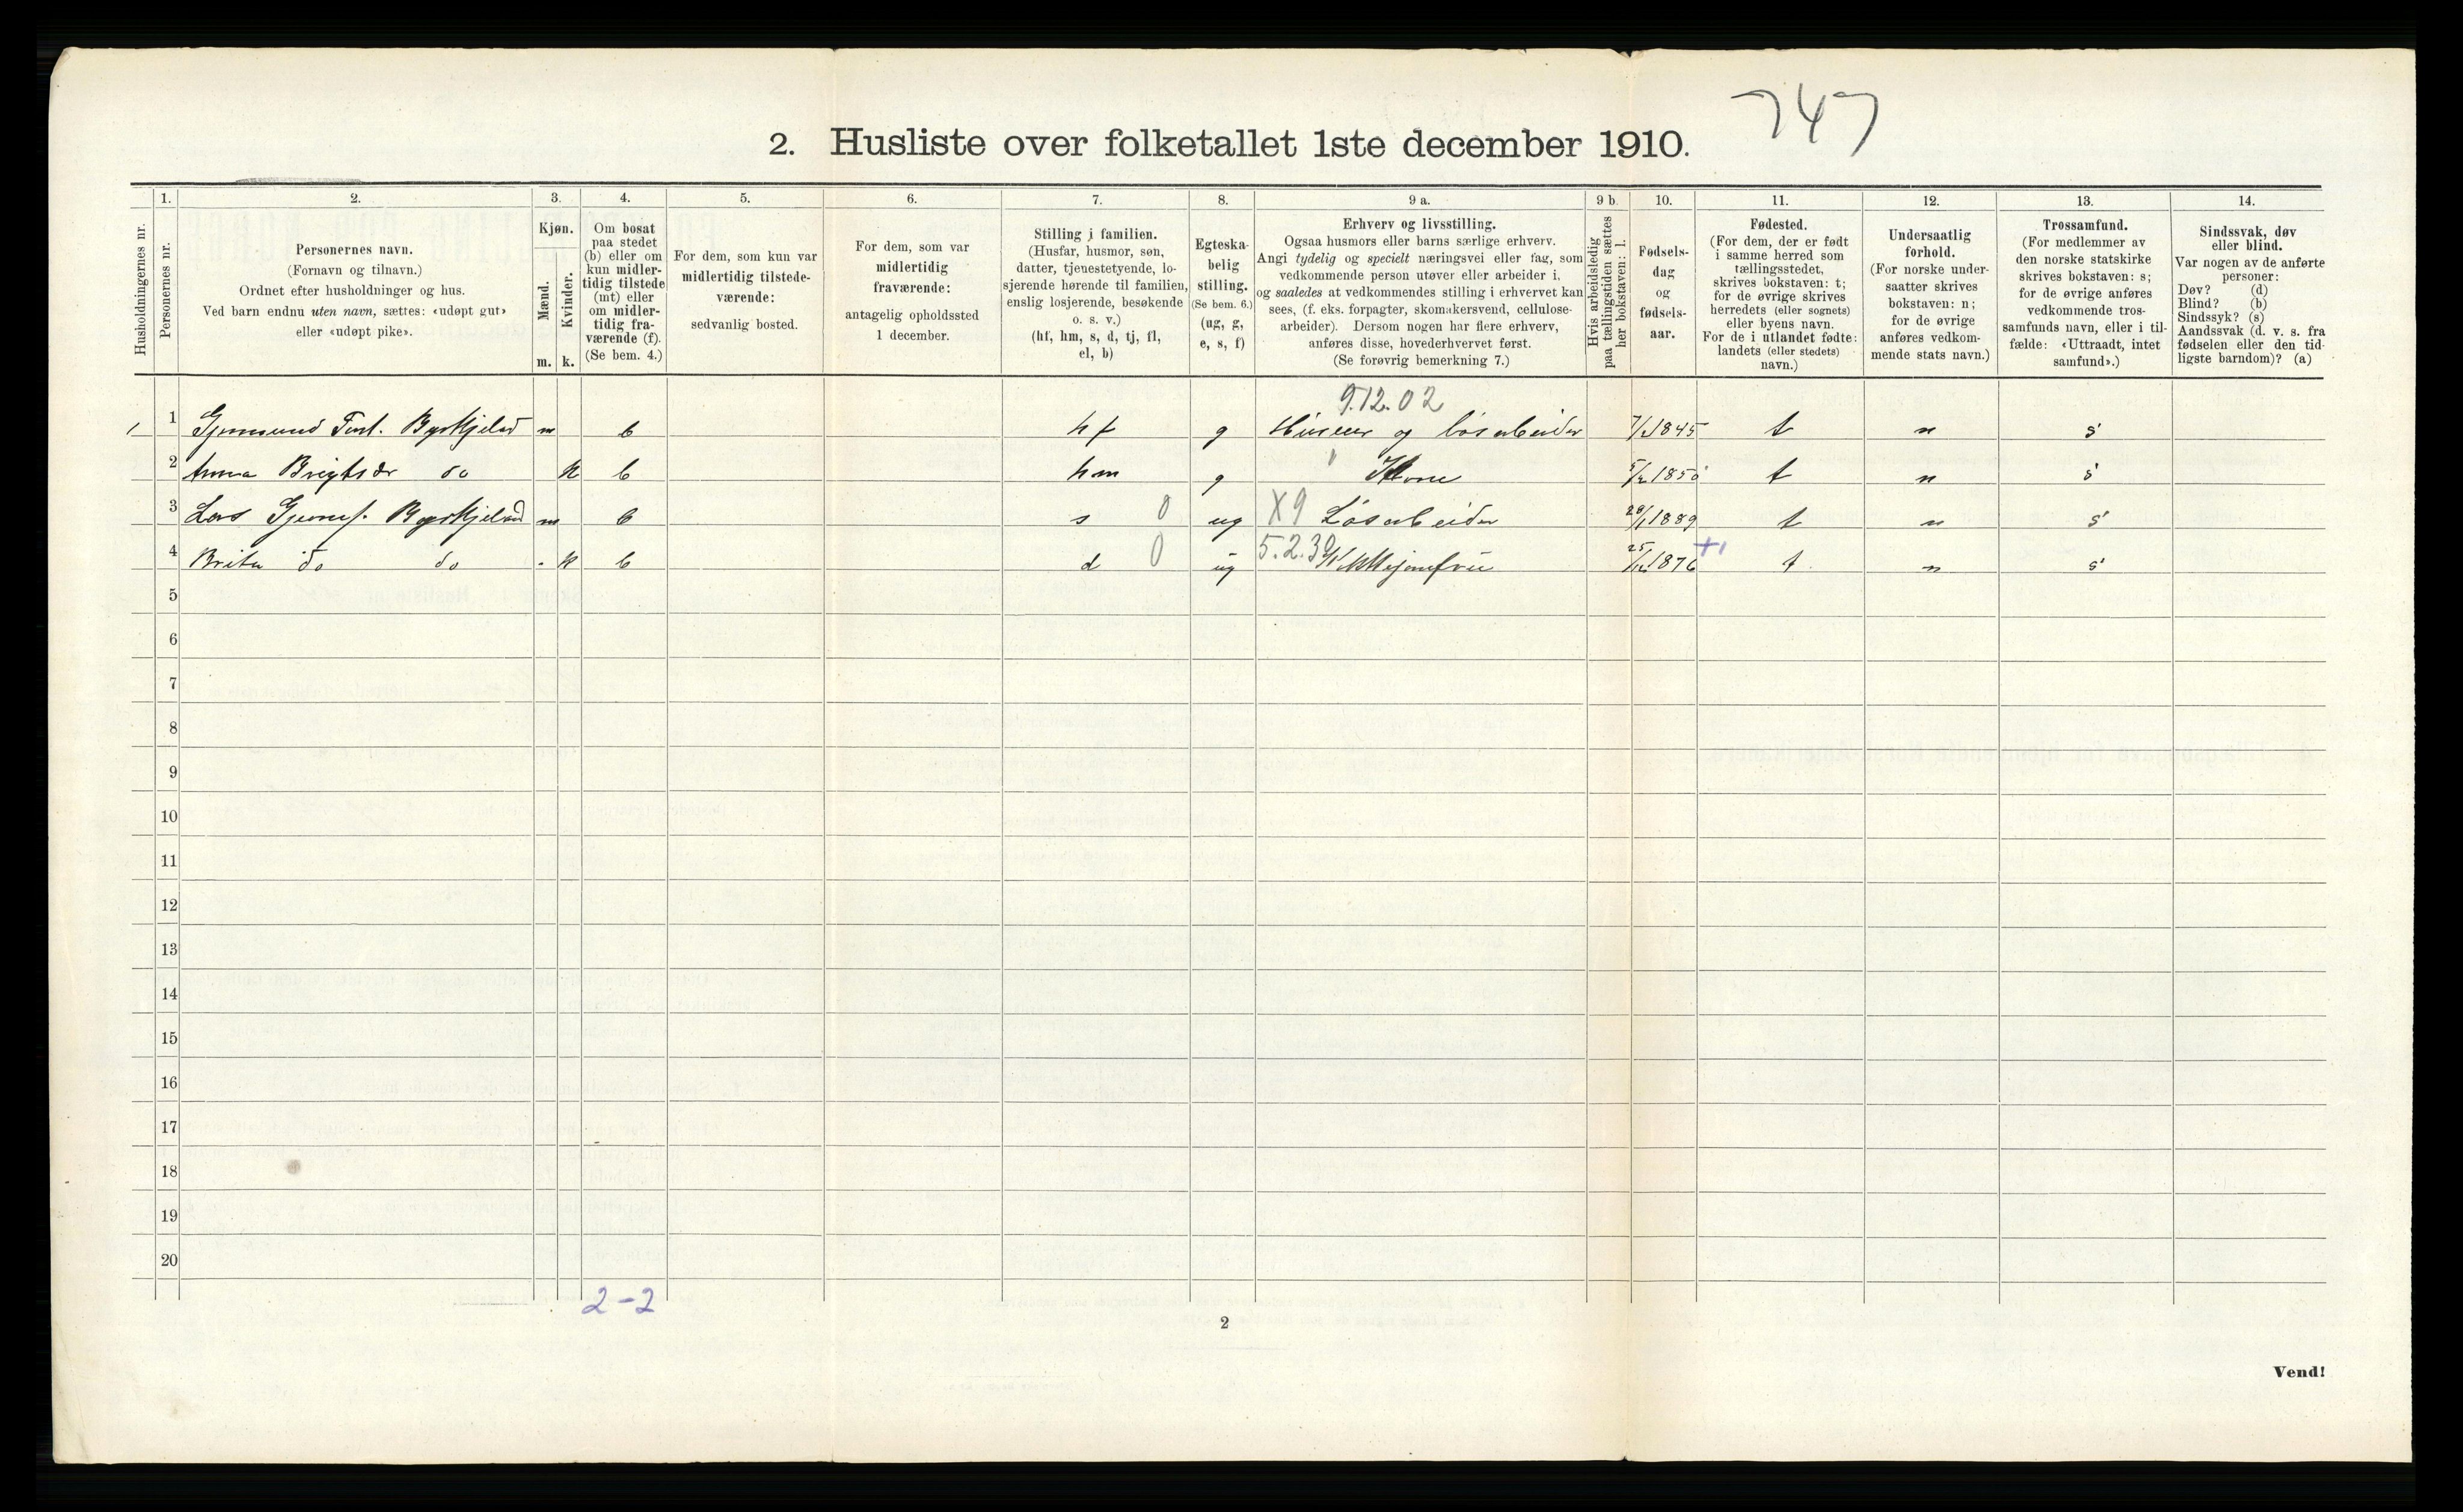 747
2. Husliste over folketallet 1ste december 1910.
Husholdningernes nr.
1.
Personernes nr.
2.
Personernes navn.
(Fornavn og tilnavn.)
Ordnet efter husholdninger og hus.
Ved barn endnu uten navn, sættes: «udøpt gut»
eller «udøpt pike».
3.
Kjøn.
Mænd.
Kvinder.
m. k.
4.
Om bosat
paa stedet
(b) eller om
kun midler-
tidig tilstede
(mt) eller
om midler-
tidig fra-
værende (f).
(Se bem. 4.)
5.
For dem, som kun var
midlertidig tilstede-
værende:
sedvanlig bosted.
6.
For dem, som var
midlertidig
fraværende:
antagelig opholdssted
1 december.
7.
Stilling i familien.
(Husfar, husmor, søn,
datter, tjenestetyende, lo-
sjerende hørende til familien,
enslig losjerende, besøkende
o. s. v.)
(hf, hm, s, d, tj, fl,
el, b)
8.
Egteska-
belig
stilling.
(Se bem. 6.)
(ug, g,
e, s, f)
9 a.
Erhverv og livsstilling.
Ogsaa husmors eller barns særlige erhverv.
Angi tydelig og specielt næringsvei eller fag, som
vedkommende person utøver eller arbeider i,
og saaledes at vedkommendes stilling i erhvervet kan
sees, (f. eks. forpagter, skomakersvend, cellulose-
arbeider). Dersom nogen har flere erhverv,
anføres disse, hovederhvervet først.
(Se forøvrig bemerkning 7.)
9 b.
Hvis arbeidsledig
paa tællingstiden sættes
her bokstaven: l.
10.
Fødsels-
dag
og
fødsels-
aar.
11.
Fødested.
(For dem, der er født
i samme herred som
tællingsstedet,
skrives bokstaven: t;
for de øvrige skrives
herredets (eller sognets)
eller byens navn.
For de i utlandet fødte:
landets (eller stedets)
navn.)
12.
Undersaatlig
forhold.
(For norske under-
saatter skrives
bokstaven: n;
for de øvrige
anføres vedkom-
mende stats navn.)
13.
Trossamfund.
(For medlemmer av
den norske statskirke
skrives bokstaven: s;
for de øvrige anføres
vedkommende tros-
samfunds navn, eller i til-
fælde: «Uttraadt, intet
samfund».)
14.
Sindssvak, døv
eller blind.
Var nogen av de anførte
personer:
Døv? (d)
Blind? (b)
Sindssyk? (s)
Aandssvak (d. v. s. fra
fødselen eller den tid-
ligste barndom)? (a)
9.12.02
1 1 Gjermund m b hf g og løsarbeider 1845 t n s
2 Anna do k b hm g Kone t n s
3 Lars m b s 0 ug X9 Løsarbeider 1889 t n s
4 Brita do do k b d 0 ug 5.2.39 25/12 1876 t n s
5
6
7
8
9
10
11
12
13
14
15
16
17
18
19
20
2-2
2
Vend!